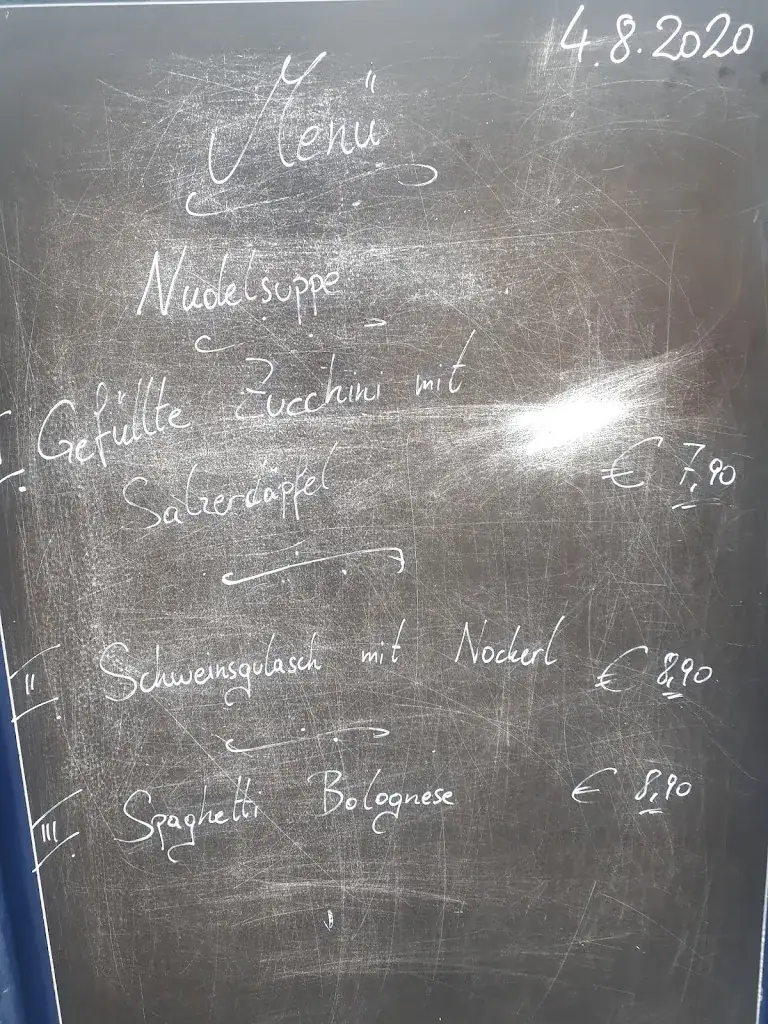 4.8.2020
Menü
Nudelsuppe
Gefüllte Zucchini mit
Salzerdäpfel € 7,90
II. Schweinsgulasch mit Nockerl € 8,90
III. Spaghetti Bolognese € 8,90